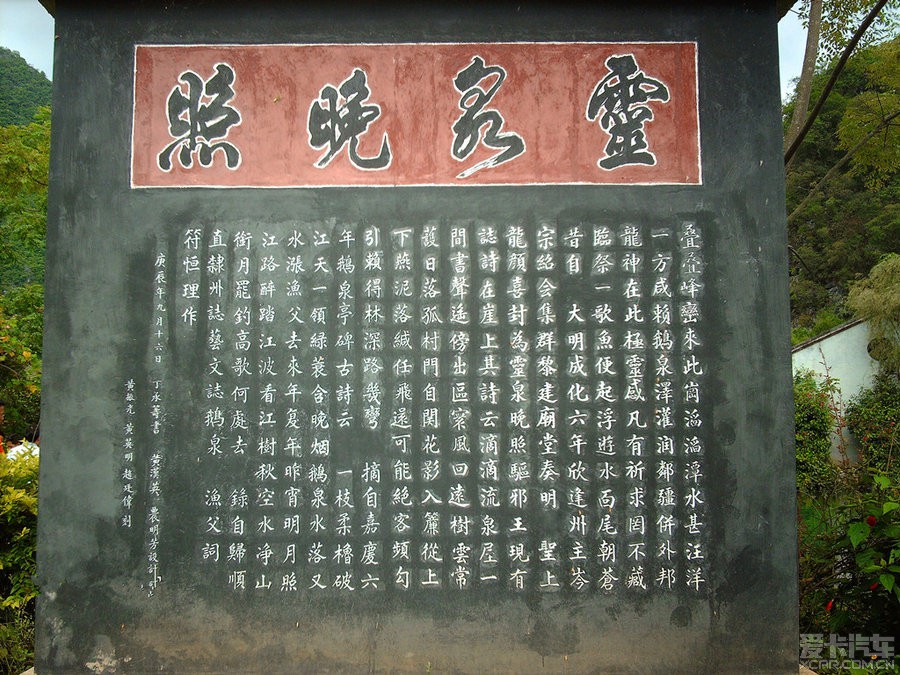 靈泉晚照
疊疊峰巒來此崗滔滔潭水甚汪洋
一方咸賴鵝泉澤灌润鄰疆併外邦
龍神在此極靈感凡有祈求罔不藏
臨祭一歌魚便起浮遊水面尾朝蒼
昔自 大明成化六年欣逢州主岑
宗紹会集群黎建廟堂奏明 聖上
龍顏喜封為靈泉晚照驅邪王現有
誌詩在崖上其詩云滴滴流泉屋一
間書聲遥傍出區寰風回遠樹雲常
護日落孤村門自関花影入簾從上
下燕泥落絨任飛還可能絶客頻勾
引賴得林深路幾彎 摘自嘉慶六
年鵝泉亭碑古詩云 一枝柔櫓破
江天一領綠蓑含晚烟鵝泉水落又
水漲漁父去來年复年昨宵明月照
江路醉踏江波看江樹秋空水净山
銜月罷釣高歌何處去 錄自歸順
直隸州誌藝文誌鵝泉 漁父詞
符恒理作
庚辰年九月十六日 丁永菁書 黄漢英 農明芳設計
黄敏光 黄英明 趙廷偉刻
爱卡汽车
XCAR.COM.CN